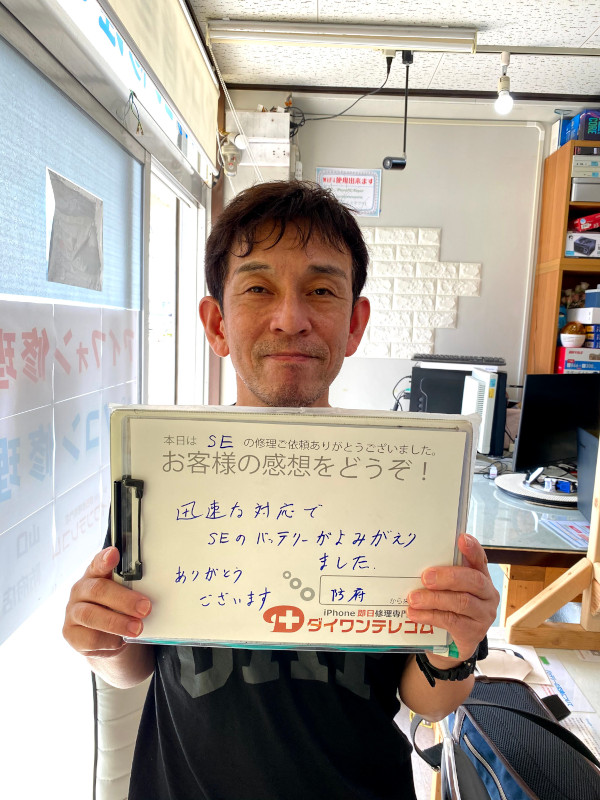 WiFi使用出来ます
イフォン修理
コン修理
山口
本日は SE の修理ご依頼ありがとうございました。
お客様の感想をどうぞ！
迅速な対応で
SEのバッテリーがよみがえり
ました.
ありがとう
ございます
防府
から
iPhone 即日修理専門
ダイワンテレコム